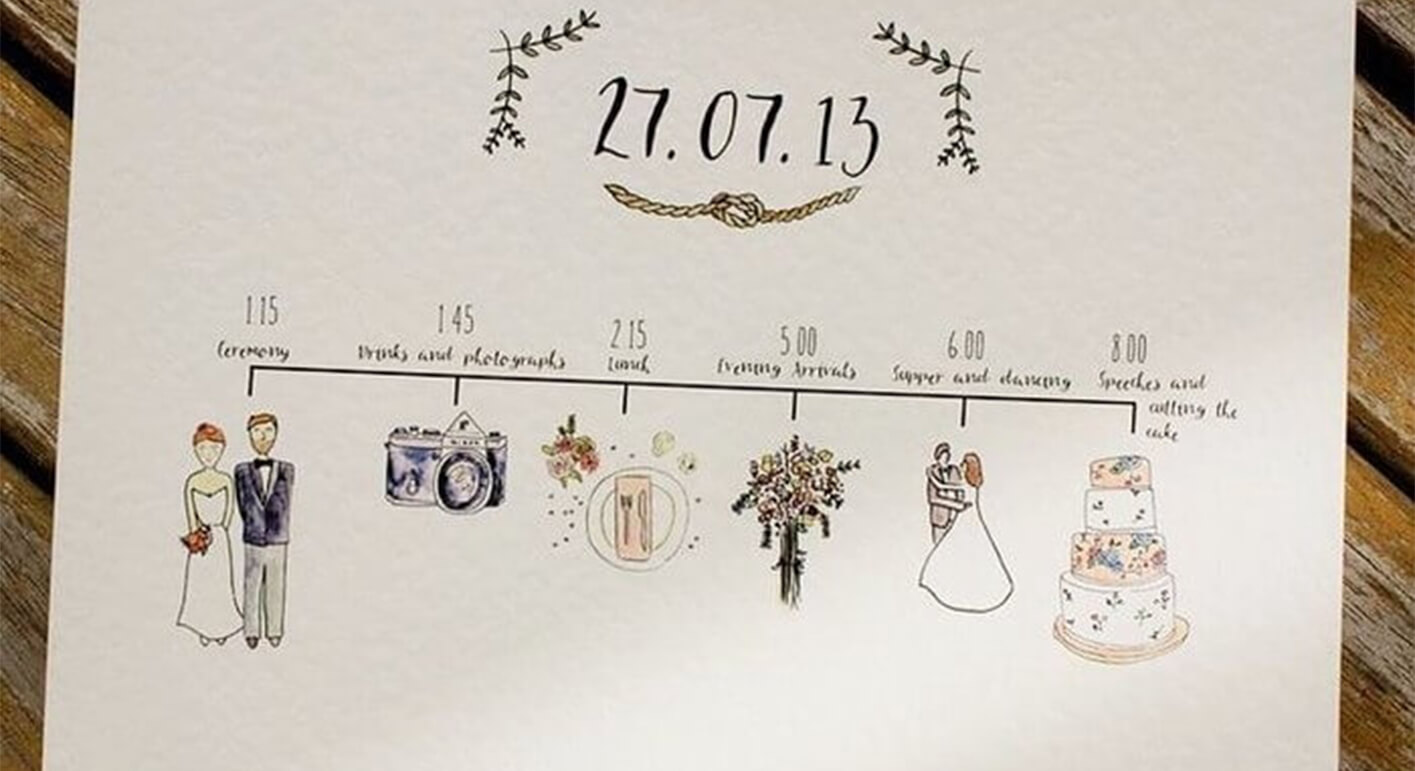 27.07.13
1 15
Ceremony
1 45
Drinks and photographs
2 15
Lunch
5 00
Evening Arrivals
6 00
Supper and dancing
8 00
Speeches and
cutting the
cake